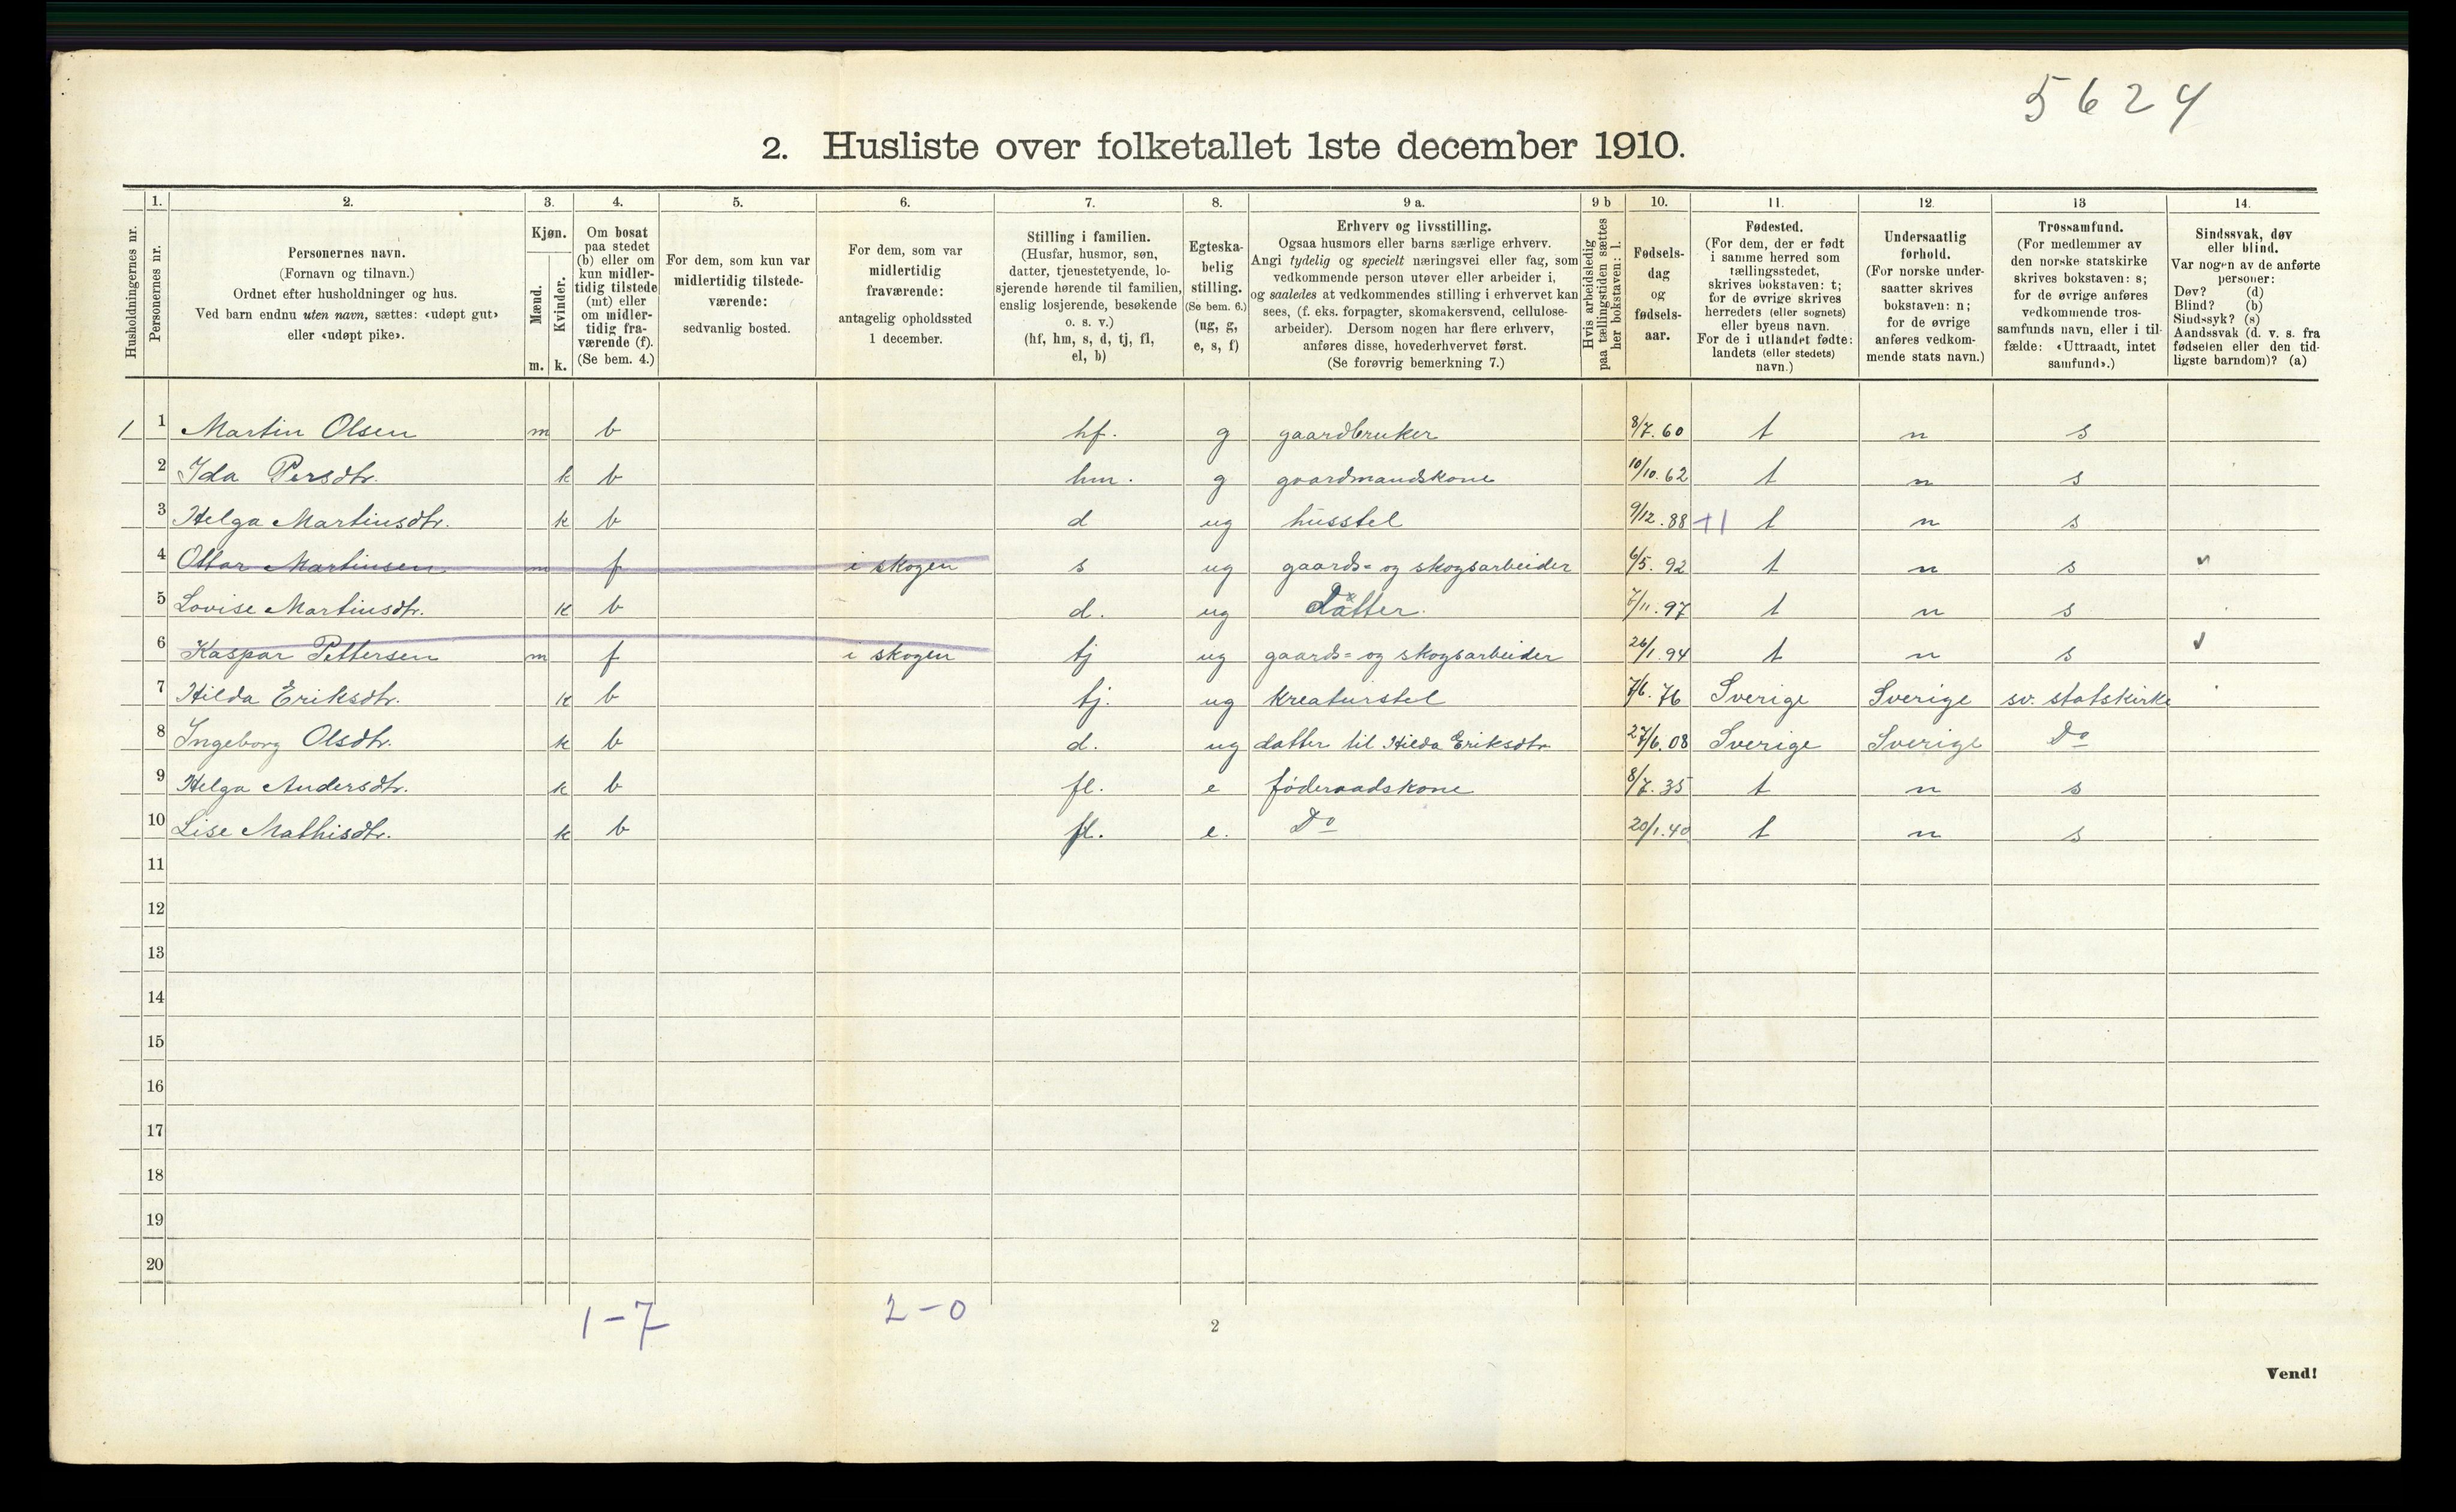 5624
2. Husliste over folketallet 1ste december 1910.
Husholdningernes nr.
1.
Personernes nr.
2.
Personernes navn.
(Fornavn og tilnavn.)
Ordnet efter husholdninger og hus.
Ved barn endnu uten navn, sættes: «udøpt gut»
eller «udøpt pike».
3.
Kjøn.
Mænd. Kvinder.
m. k.
4.
Om bosat
paa stedet
(b) eller om
kun midler-
tidig tilstede
(mt) eller
om midler-
tidig fra-
værende (f).
(Se bem. 4.)
5.
For dem, som kun var
midlertidig tilstede-
værende:
sedvanlig bosted.
6.
For dem, som var
midlertidig
fraværende:
antagelig opholdssted
1 december.
7.
Stilling i familien.
(Husfar, husmor, søn,
datter, tjenestetyende, lo-
sjerende hørende til familien,
enslig losjerende, besøkende
o. s. v.)
(hf, hm, s, d, tj, fl,
el, b)
8.
Egteska-
belig
stilling.
(Se bem. 6.)
(ug, g,
e, s, f)
9 a.
Erhverv og livsstilling.
Ogsaa husmors eller barns særlige erhverv.
Angi tydelig og specielt næringsvei eller fag, som
vedkommende person utøver eller arbeider i,
og saaledes at vedkommendes stilling i erhvervet kan
sees, (f. eks. forpagter, skomakersvend, cellulose-
arbeider). Dersom nogen har flere erhverv,
anføres disse, hovederhvervet først.
(Se forøvrig bemerkning 7.)
9 b
Hvis arbeidsledig
paa tællingstiden sættes
her bokstaven: l.
10.
Fødsels-
dag
og
fødsels-
aar.
11.
Fødested.
(For dem, der er født
i samme herred som
tællingsstedet,
skrives bokstaven: t;
for de øvrige skrives
herredets (eller sognets)
eller byens navn.
For de i utlandet fødte:
landets (eller stedets)
navn.)
12.
Undersaatlig
forhold.
(For norske under-
saatter skrives
bokstaven: n;
for de øvrige
anføres vedkom-
mende stats navn.)
13
Trossamfund.
(For medlemmer av
den norske statskirke
skrives bokstaven: s;
for de øvrige anføres
vedkommende tros-
samfunds navn, eller i til-
fælde: «Uttraadt, intet
samfund».)
14.
Sindssvak, døv
eller blind.
Var nogen av de anførte
personer:
Døv? (d)
Blind? (b)
Sindssyk? (s)
Aandssvak (d. v. s. fra
fødselen eller den tid-
ligste barndom)? (a)
1 1 Martin Olsen m b hf. g gaardbruker 8/7.60 t n s
2 Ida Persdtr. k b hm. g gaardmandskone 10/10.62 t n s
3 Helga Martinsdtr. k b d ug husstel 9/12.88 +1 t n s
4 Ottar Martinsen m f i skogen s ug gaards= og skogsarbeider 6/5.92 t n s
5 Lovise Martinsdtr. k b d. ug datter. 7/11.97 t n s
6 Kaspar Pettersen m f i skogen tj ug gaards= og skogsarbeider 26/1.94 t n s
7 Hilda Eriksdtr. k b tj. ug kreaturstel 7/6.76 Sverige Sverige sv. statskirke
8 Ingeborg Olsdtr. k b d. ug datter til Hilda Eriksdtr. 27/6.08 Sverige Sverige Do
9 Helga Andersdtr. k b fl. e føderaadskone 8/7.35 t n s
10 Lise Mathisdtr. k b fl. e. Do 20/1.40 t n s
11
12
13
14
15
16
17
18
19
20
1-7 2-0
2
Vend!